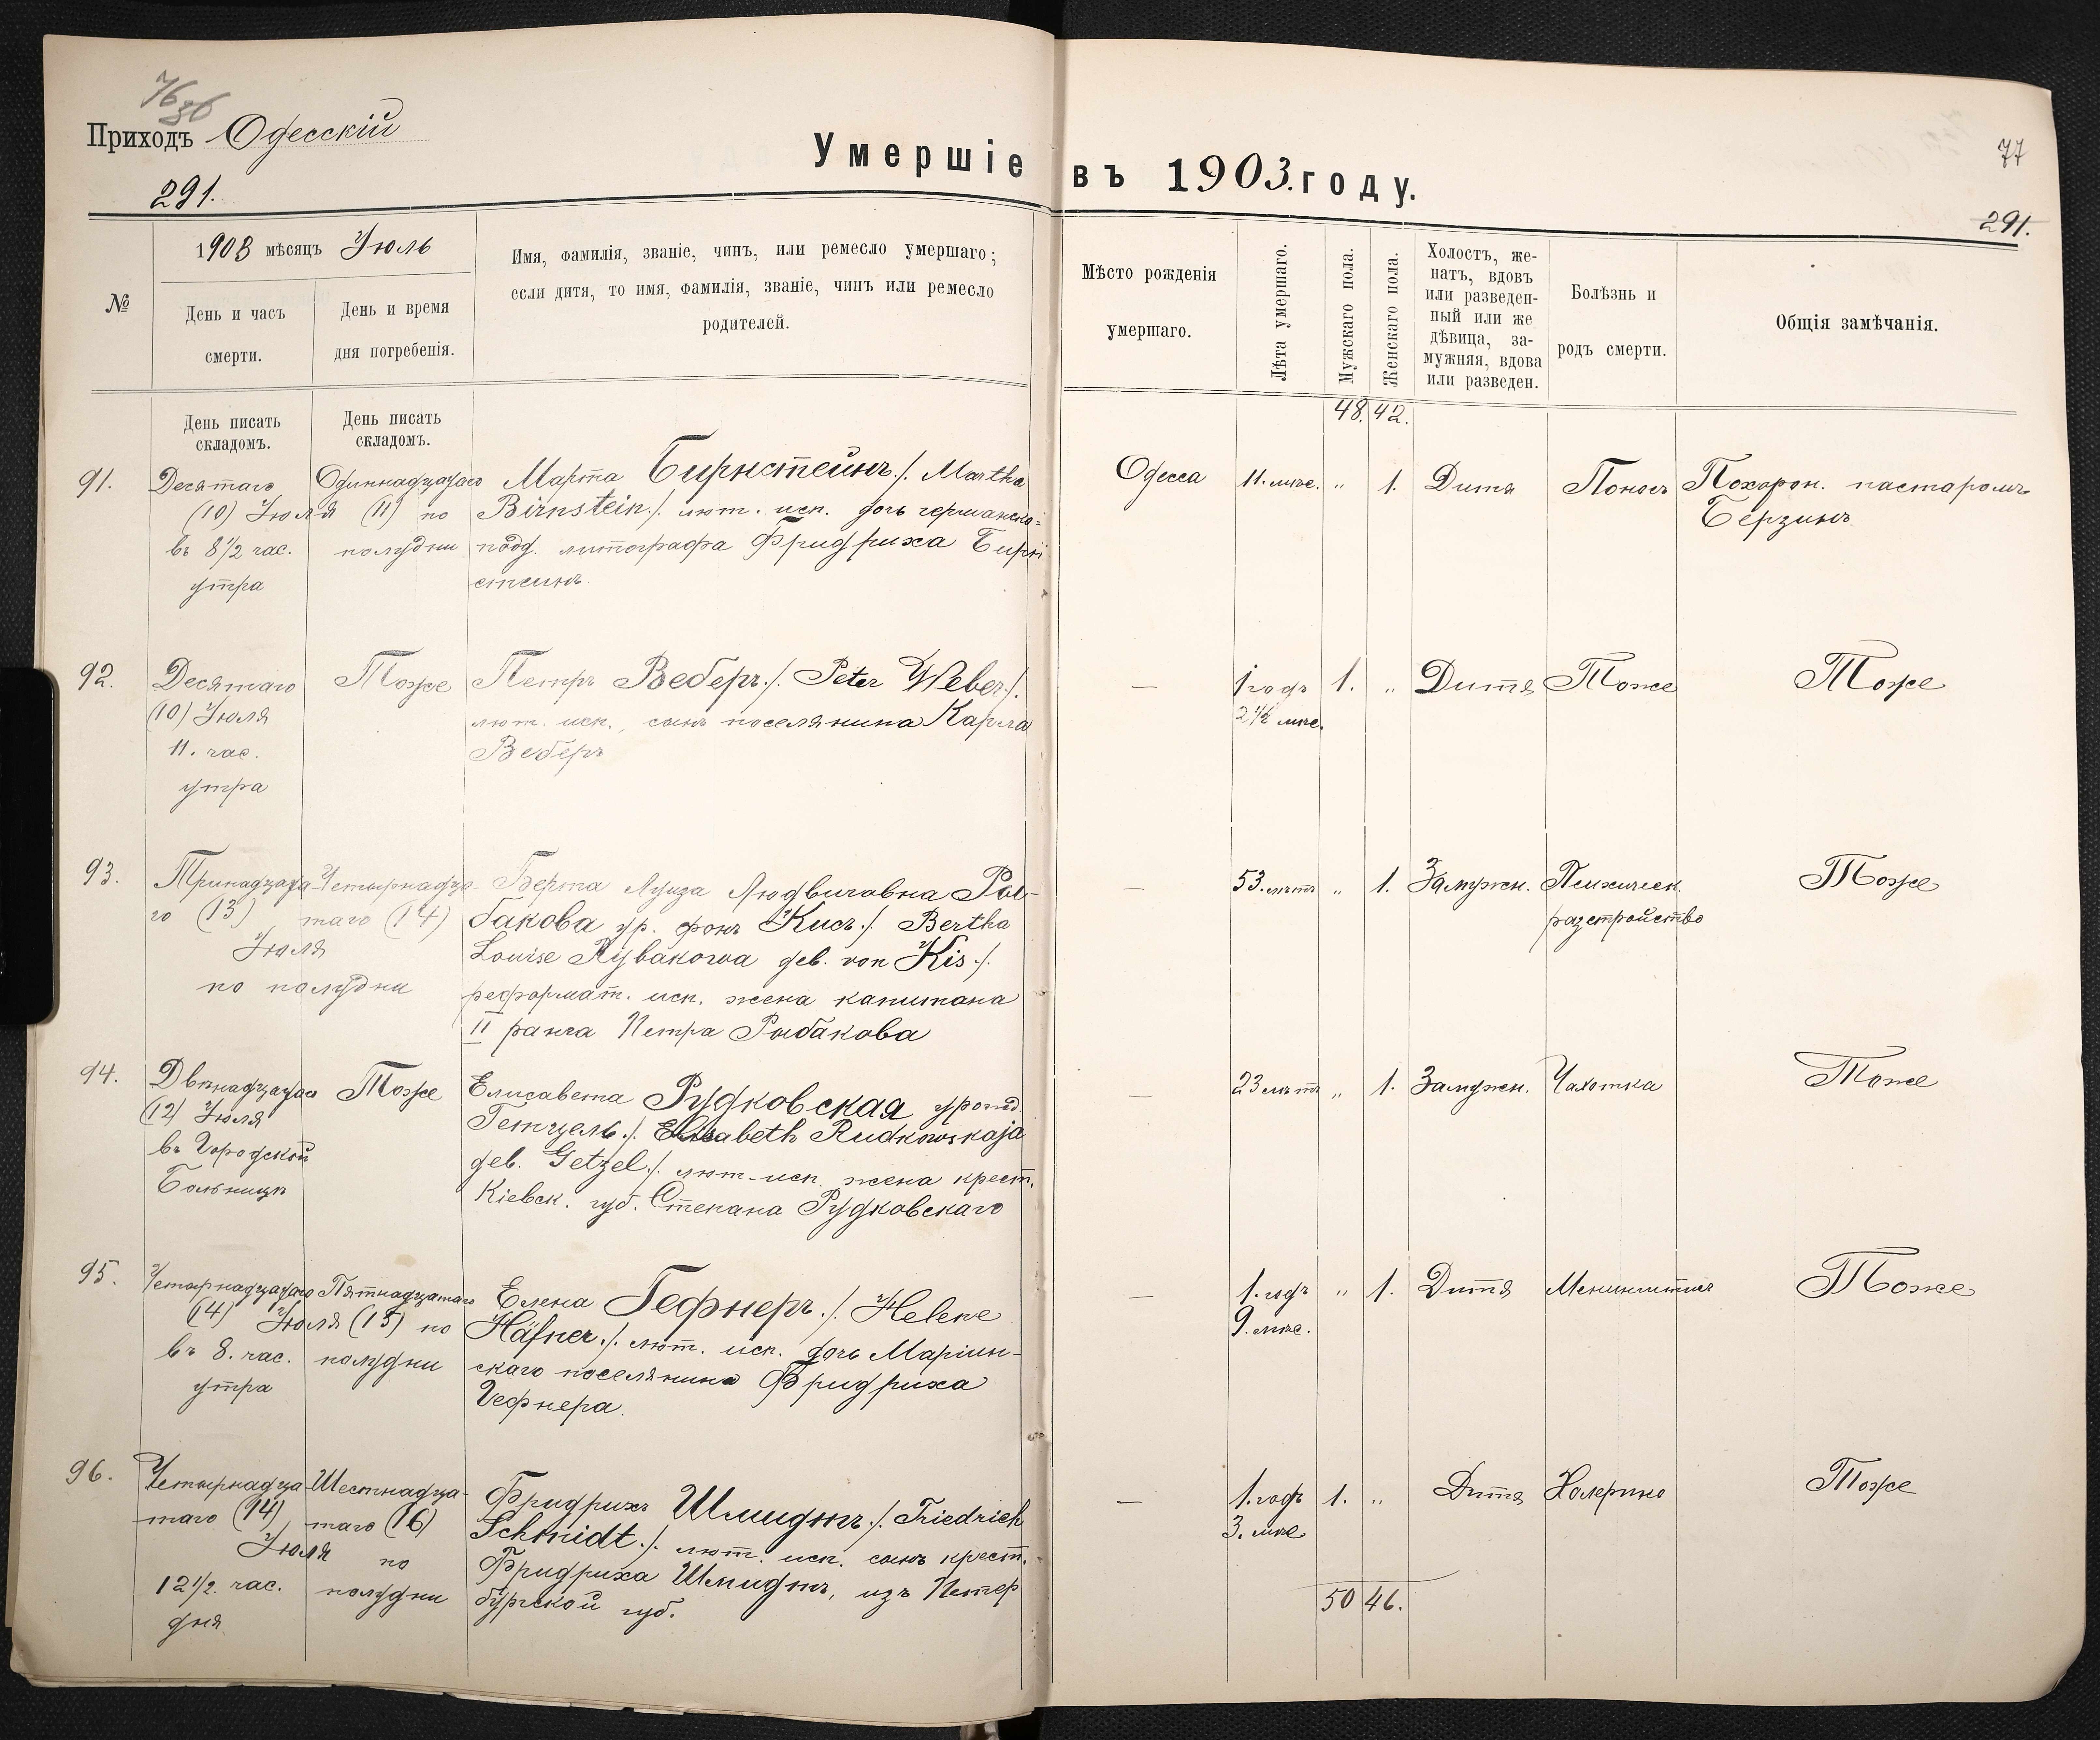 76
36
Приходъ Одесскій
Умершіе въ 1903. году.
77
291.
291.
№
1903 мѣсяцъ Іюль
День и часъ смерти.
День и время дня погребенія.
Имя, фамилія, званіе, чинъ, или ремесло умершаго;
если дитя, то имя, фамилія, званіе, чинъ или ремесло
родителей.
Мѣсто рожденія
умершаго.
Лѣта умершаго.
Мужскаго пола.
Женскаго пола.
Холостъ, же-
натъ, вдовъ
или разведен-
ный или же
дѣвица, за-
мужняя, вдова
или разведен.
Болѣзнь и
родъ смерти.
Общія замѣчанія.
День писать
складомъ.
День писать
складомъ.
48. 42.
91.
Десятаго
(10) Іюля
въ 8 1/2 час.
утра
Одиннадцатаго
(11) по
полудни
Марта Бирнстейнъ ./. Martha
Birnstein ./. лют. исп. дочь германско-
подд. литографа Фридриха Бирн-
стеинъ
Одесса
11. мѣс.
„
1.
Дитя
Поносъ
Похорон. пасторомъ
Берзинъ
92.
Десятаго
(10) Іюля
11. час.
утра
Тоже
Петръ Веберъ ./. Peter Weber ./.
лют. исп., сынъ поселянина Карла
Веберъ
—
1 годъ
2 1/2 мѣс.
1.
„
Дитя
Тоже
Тоже
93.
Тринадцата-
го (13)
Іюля
по полудни
Четырнадца-
таго (14)
Берта Луиза Людвиговна Ры-
бакова ур. фонъ Кисъ ./. Bertha
Louise Rybakowa geb. von Kis ./.
реформат. исп. жена капитана
II ранга Петра Рыбакова
—
53. лѣтъ
„
1.
Замужн.
Психическ.
разстройство
Тоже
94.
Двѣнадцатаго
(12) Іюля
въ Городской
Больницѣ
Тоже
Елисавета Рудковская урожд.
Гетцель ./. Elisabeth Rudkowskaja
geb. Getzel ./. лют. исп. жена крест.
Кіевск. губ. Степана Рудковскаго
—
23 лѣтъ
„
1.
Замужн.
Чахотка
Тоже
95.
Четырнадцатаго
(14) Іюля
въ 8. час.
утра
Пятнадцатаго
(15) по
полудни
Елена Гефнеръ ./. Helene
Häfner ./. лют. исп. дочь Маріин-
скаго поселянина Фридриха
Гефнера.
—
1. годъ
9. мѣс.
„
1.
Дитя
Менингитисъ
Тоже
96.
Четырнадца-
таго (14)
Іюля
12 1/2. час.
дня
Шестнадца-
таго (16)
по
полудни
Фридрихъ Шмидтъ ./. Friedrich
Schmidt ./. лют. исп. сынъ крест.
Фридриха Шмидтъ, изъ Петер
бургской губ.
—
1. годъ
3. мѣс
1.
„
Дитя
Холерино
Тоже
50 46.